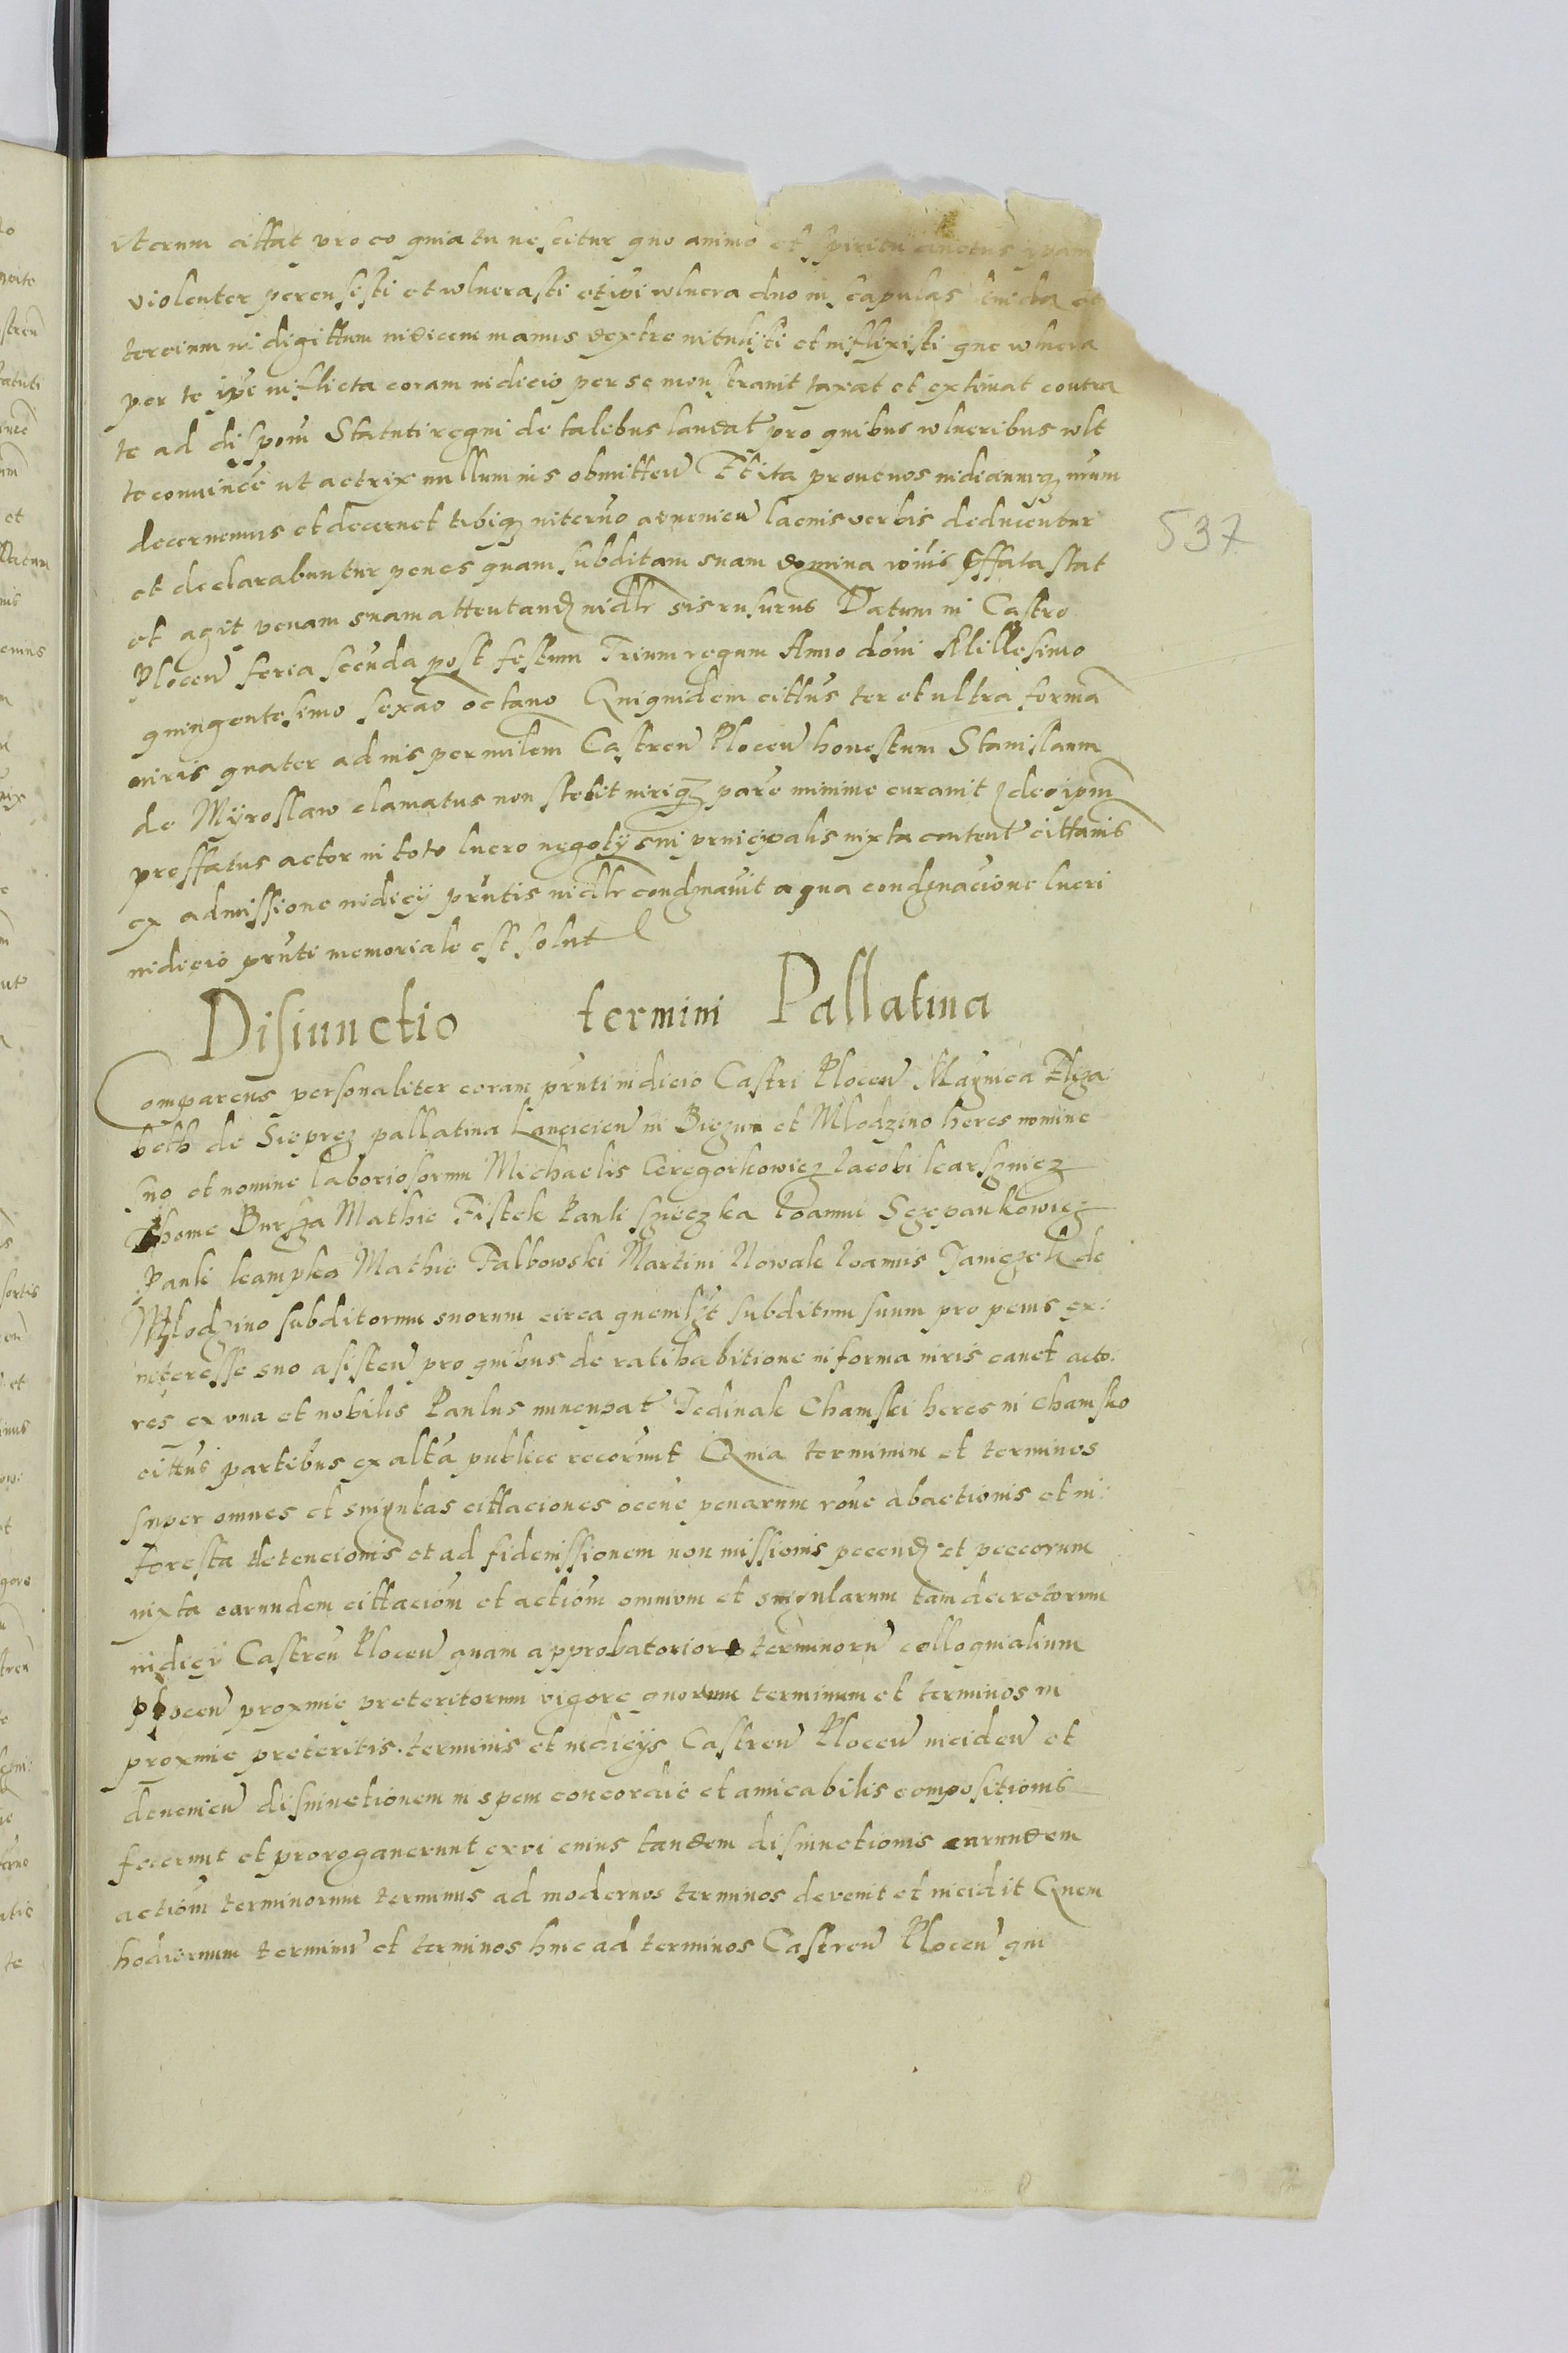 iterum cittat pro eo quia tu nescitur quo animo et spiritu ductus ipam
violenter percussisti et wlnerasti et ipi wlnera duo in scapulas
tercium in digittum indicem manus dextre intulisti et inflixisti que wlnera
per te ipe inflicta coram iudicio per se monstravit taxat et extimat contra
te ad disposm Statuti regni de talebus laudat pro quibus wlneribus wlt
te convince ut actrix nullum ius obmitten Et ita prout nos iudicaniuiq nrum
decernemus et decernet tibiq in termo advenien lacius verbis deducentur
et declarabuntur penes quam subditam suam domina rovis pffata stat
et agit penam suam attentand iudlr sis rusurus Datum in Castro
Plocen feria secunda post festum Trium regum Anno domi Millesimo
quingentesimo sexao octavo Quiquidem cittus ter et ultra formã
iuris quater ad nis per milem Castren Plocen honestum Stanislaum
de Myroslaw clamatus non stetit iuriq pare minime curavit ideo ipm
preffatus actor in toto lucro negotÿ sui principalis iuxta content cittanis
ex admissione iudicÿ pñtis iudlr condgnavit a qua condgnacione lucri
iudicio pñti memoriale est solut
Disiunctio termini Pallatina
Comparens personaliter coram pñti iudicio Castri Plocen Magnica Eliza
beth de Sieprcz pallatina Lancicien in Biezun et Mlodzino heres nomine
suo et nomine laboriosorum Michaelis Gregorkowicz Jacobi karsznicz
Thome Bursza Mathie Fistek Pauli szieczka Joannis Sczepankowicz
Pauli kampka Mathie Falbowski Martini Nowak Joannis Janczek de
Mlodzino subditorum suorum circa quemlzt subditum suum pro penis ex
interesse suo asisten pro quibus de ratihabitione in forma iuris cauet acto:
res ex vna et nobilis Paulus nuncupat Jedinak Chamski heres in Chamsko
cittus partibus ex altã publice recorunt Quia terminum et terminos
super omnes et singulas cittaciones occne penarum roue abactionis et in:
foresta detencionis et ad fideiussionem non missionis pecend et peccorum
iuxta earundem cittaciom et actiom omnium et singularum tam decretorum
iudicÿ Castren Plocen quam approbatorior terminorũ colloquialium
Plocen proxmie preteritorum vigore quorum terminum et terminos in
proxmie preteritis terminis et iudicÿs Castren Plocen inciden et
devenien disiunctionem in spem concordie et amicabilis compositionis
fecerunt et prorogaverunt ex vi cuius tandem disiunctionis earundem
actiom terminorum terminus ad modernos terminos devenit et incidit Quem
hodiernum terminũ et terminos hinc ad terminos Castren Plocen qui
537